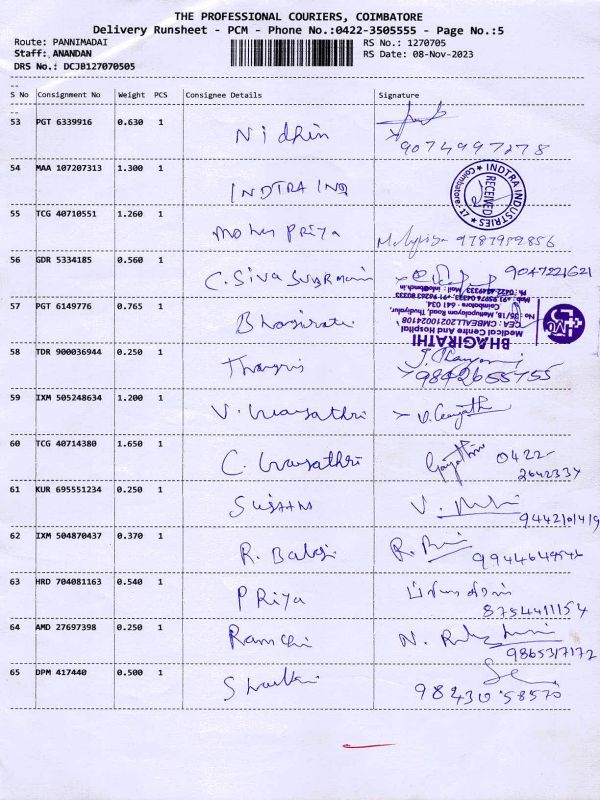 THE PROFESSIONAL COURIERS, COIMBATORE
Delivery Runsheet - PCM - Phone No.:0422-3505555 - Page No.:5
Route: PANNIMADAI RS No.: 1270705
Staff: ANANDAN RS Date: 08-Nov-2023
DRS No.: DCJB127070505
S No Consignment No Weight PCS Consignee Details Signature
53 PGT 6339916 0.630 1 Nidhin
9074997278
54 MAA 107207313 1.300 1 INDTRA IND INDTRA INDUSTRIES RECEIVED Coimbatore-17
55 TCG 40710551 1.260 1 Mohu PRIYA 9787959856
56 GDR 5334185 0.560 1 C. Siva 9047221621
57 PGT 6149776 0.765 1 Bhagirati
BHAGIRATHI
Medical Centre And Hospital
CEA: CMBEALL20210024108
Coimbatore - 641 034.
58 TDR 900036944 0.250 1
9842655755
59 IXM 505248634 1.200 1 V. Gayathri V. Gayathri
60 TCG 40714380 1.650 1 C. Gayathri Gayathri 0422-
2642337
61 KUR 695551234 0.250 1 V.
62 IXM 504870437 0.370 1 R. Balaji R.
9944649546
63 HRD 704081163 0.540 1 PRiya
8754411154
64 AMD 27697398 0.250 1 N.
9865317172
65 DPM 417440 0.500 1
98430 58570